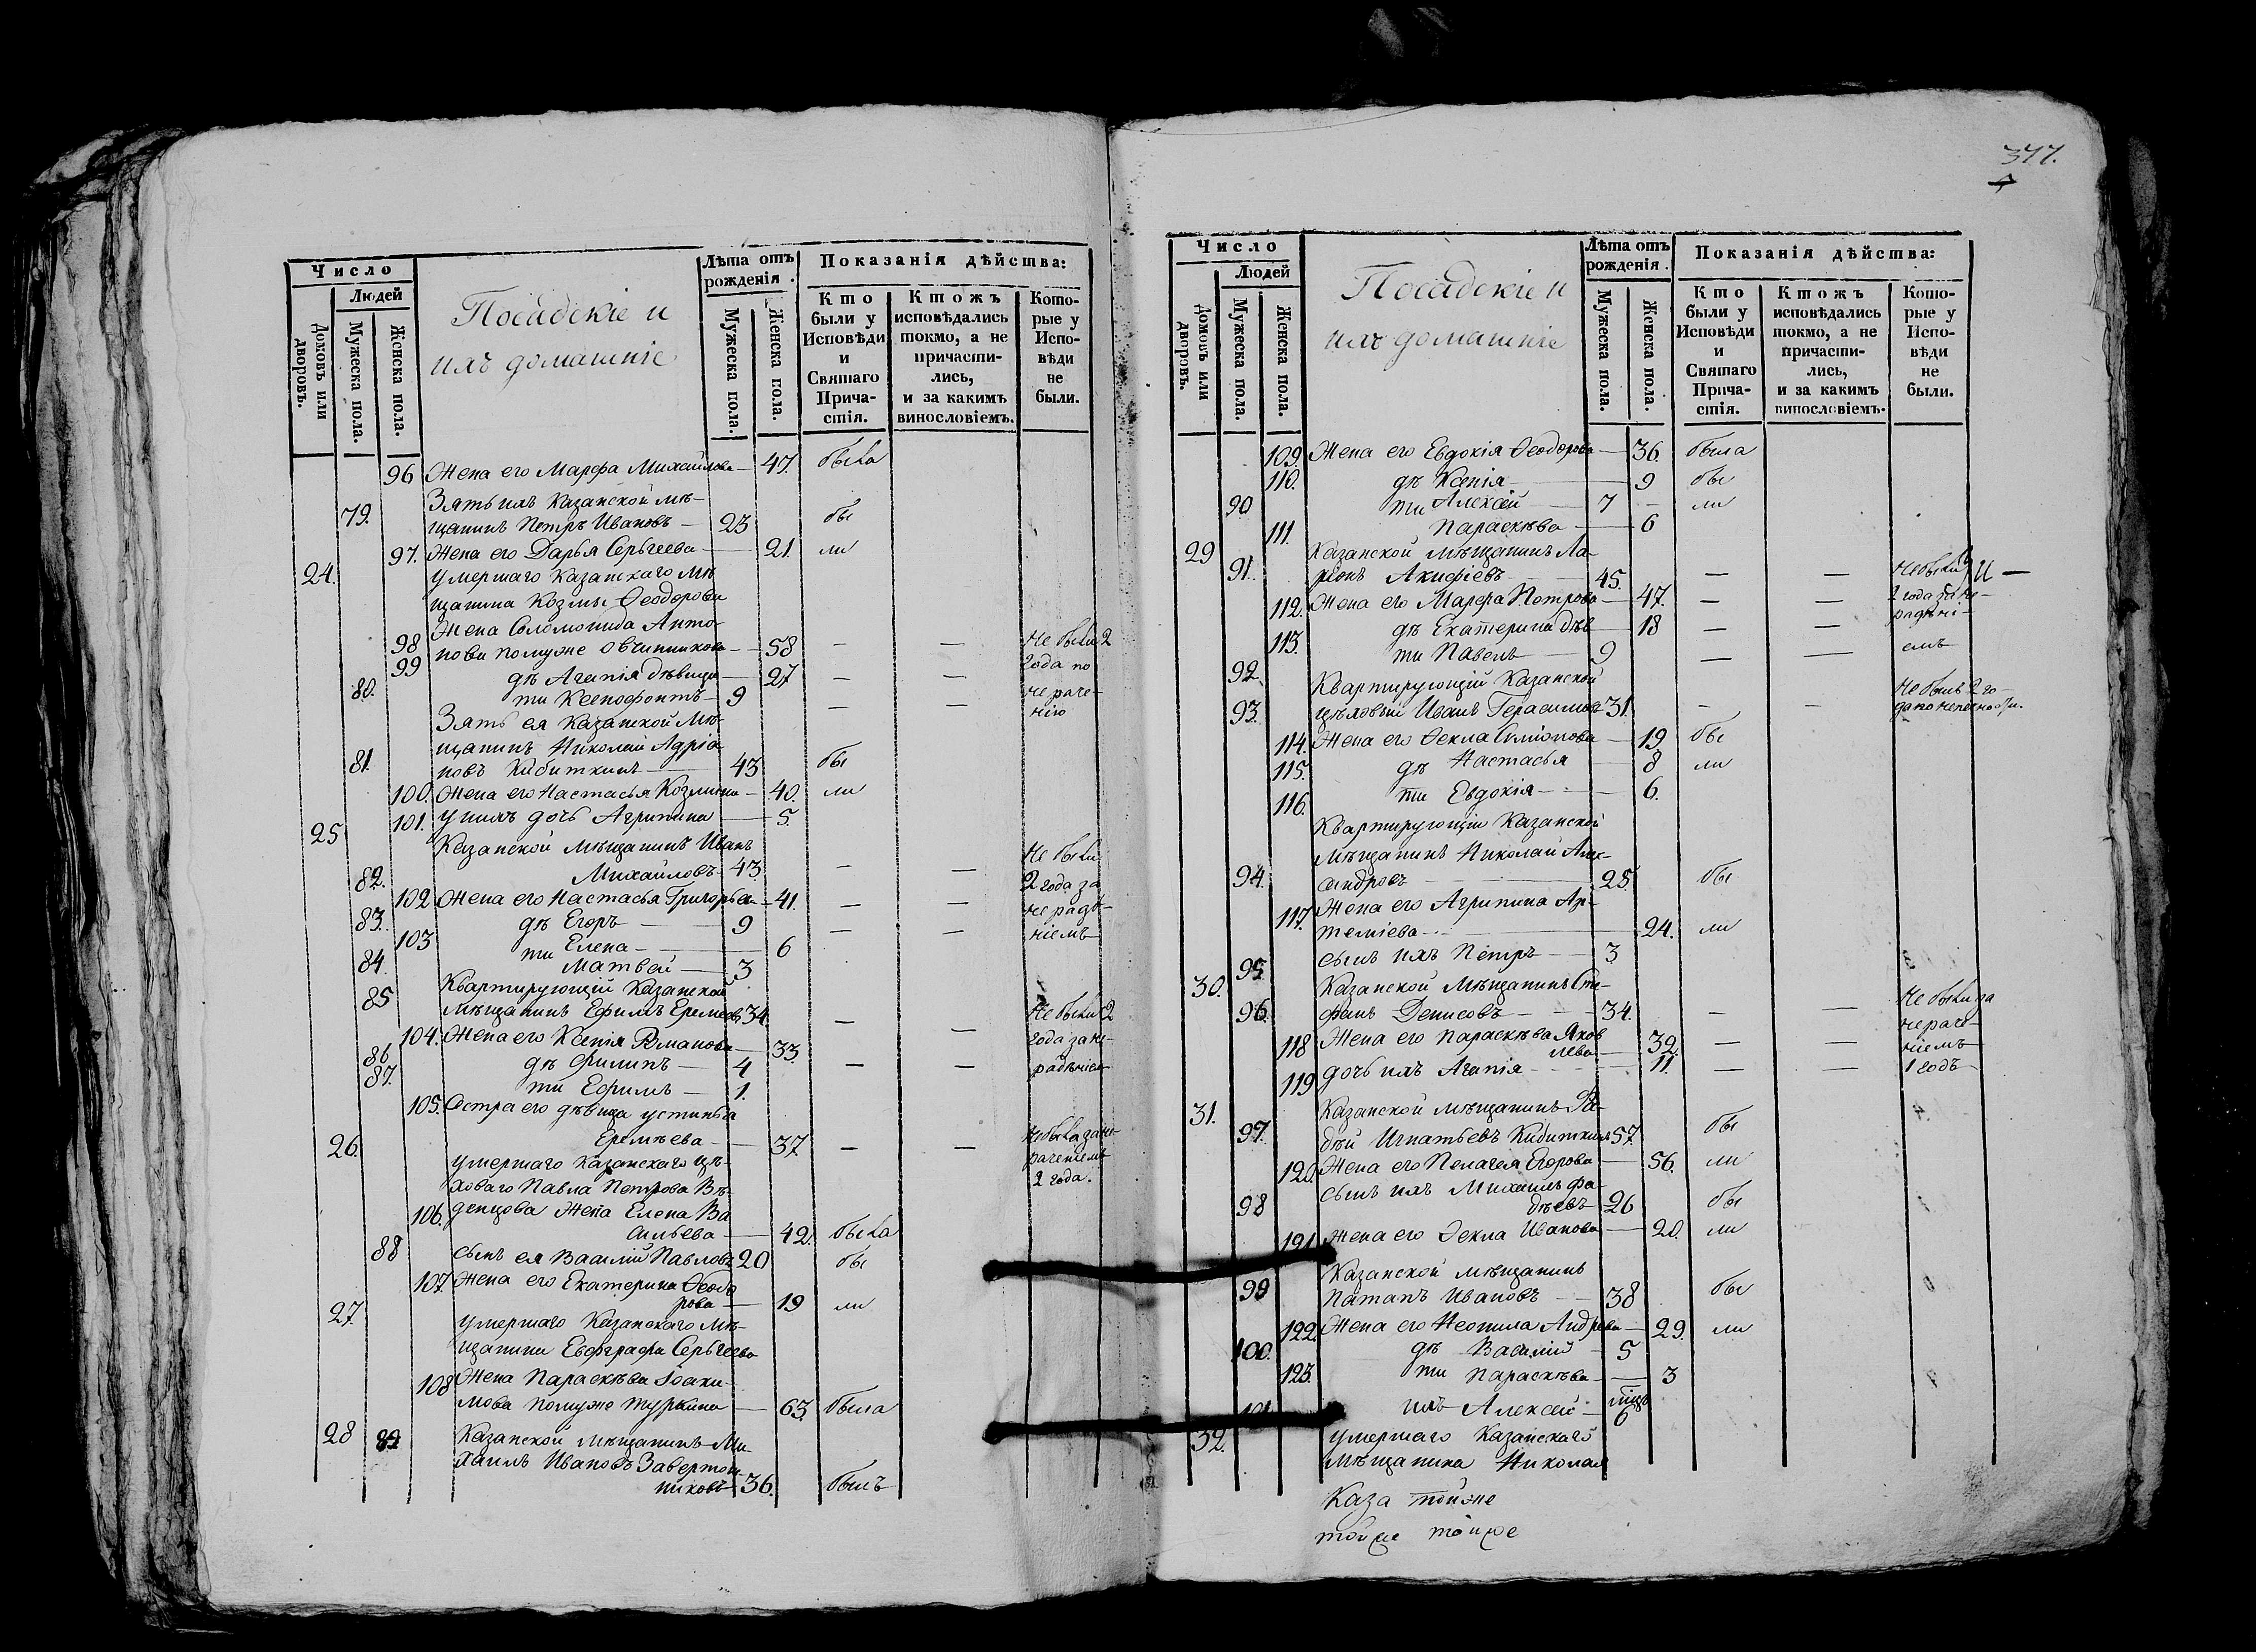 Число
Людей
Домовъ или дворовъ.
Мужеска пола.
Женска пола.
Посадскіе и
ихъ домашніе
Лѣта отъ рожденія.
Мужеска пола.
Женска пола.
Показанія дѣйства:
Кто были у Исповѣди и Святаго Причастія.
Ктожъ исповѣдались токмо, а не причастились, и за какимъ винословіемъ.
Которые у Исповѣди не были.
96 Жена его Марфа Михайлова — 47. была
Зять ихъ Казанской мѣ-
79. щанинъ Петръ Ивановъ — 23 бы
97. Жена его Дарья Сергѣева — 21. ли
24. умершаго Казанскаго мѣ
щанина Козмы Ѳеодорова
Жена Соломонида Анто-
98 нова помужѣ Овчинникова — 58 — — Не были 2
99 дѣ Агапія дѣвица — 27 — — года по
80. ти Ксенофонтъ — 9 — — нераче-
Зять ея Казанской мѣ- нію
щанинъ Николай Адріа
81. новъ Кибиткинъ — 43 бы
100. Жена его Настасья Козмина — 40. ли
101. У нихъ дочь Агрипина — 5.
25 Казанской мѣщанинъ Иванъ
82. Михайловъ — 43 — — Не были
102 Жена его Настасья Григорьева — 41. — — 2 года за
83. дѣ Егоръ — 9 — — нерадѣ-
103 ти Елена — 6 ніемъ
84. Матвей — 3
Квартирующій Казанской
85 мѣщанинъ Ефимъ Еремѣевъ 34. — — Не были 2
104. Жена его Ксенія Романова — 33 года за не-
86 дѣ Филипъ — 4 — — радѣніем
87. ти Ефимъ — 1.
105. Сестра его дѣвица устинья
Еремѣева — 37 — — Не была за не-
26. умершаго Казанскаго цѣ- раченіемъ
ховаго Павла Петрова Вѣ- 2 года.
106. денцова Жена Елена Ва
сильева — 42. была
88 сынъ ея Василій Павловъ 20 бы
107. Жена его Екатерина Ѳеодо
рова — 19 ли
27. умершаго Казанскаго мѣ-
щанина Евфграфа Сергѣева
108 Жена Параскѣва Іоаки-
мова помужѣ Туркина — 63. была
28 89 Казанской мѣщанинъ Ми-
хаилъ Ивановъ Завертош
никовъ — 36. былъ
377.
Число
Людей
Домовъ или дворовъ.
Мужеска пола.
Женска пола.
Посадскіе и
ихъ домашніе
Лѣта отъ рожденія.
Мужеска пола.
Женска пола.
Показанія дѣйства:
Кто были у Исповѣди и Святаго Причастія.
Ктожъ исповѣдались токмо, а не причастились, и за какимъ винословіемъ.
Которые у Исповѣди не были.
109. Жена его Евдокія Ѳеодорова — 36. была
110. дѣ Ксенія — 9 бы
90 ти Алексѣй — 7 — ли
111. Параскѣва — 6
29 Казанской мѣщанинъ Ла-
91. ріонъ Акифіевъ — 45. — — Не были
112. Жена его Марфа Петрова — 47. — — 2 года за не-
113. дѣ Екатерина дѣв — 18 — — радѣні-
92. ти Павелъ — 9 — — емъ
Квартирующій Казанской
93. цѣховый Иванъ Герасимовъ 31. — — Не былъ 2 го-
114. Жена его Ѳекла Симіонова — 19 бы
115. дѣ Настасья — 8 ли
116. ти Евдокія — 6.
Квартирующій Казанской
мѣщанинъ Николай Алек-
94. сандровъ — 25 бы
117. Жена его Агрипина Ар-
теміева — 24. ли
95. сынъ ихъ Петръ — 3
30. Казанской мѣщанинъ Сте-
96. фанъ Денисовъ — 34. — — Не были за
118 Жена его Параскѣва Яков нераче-
лева — 39. — — ніемъ
119 дочь ихъ Агапія — 11. — — 1 годъ
31. Казанской мѣщанинъ Фа-
97. дѣй Игнатьевъ Кибиткинъ 57. бы
120. Жена его Пелагея Егорова — 56. ли
сынъ ихъ Михаилъ Фа-
98 дѣевъ — 26 бы
121. Жена его Ѳекла Иванова — 20. ли
Казанской мѣщанинъ
99 Патапъ Ивановъ — 38 бы
122. Жена его Неонила Андрева — 29. ли
100. дѣ Василій — 5
123. ти Параскѣва — 3
101. ихъ Алексей — 6
32. умершаго Казанскаго
мѣщанина Николая
Каза тойже
тойже тойже